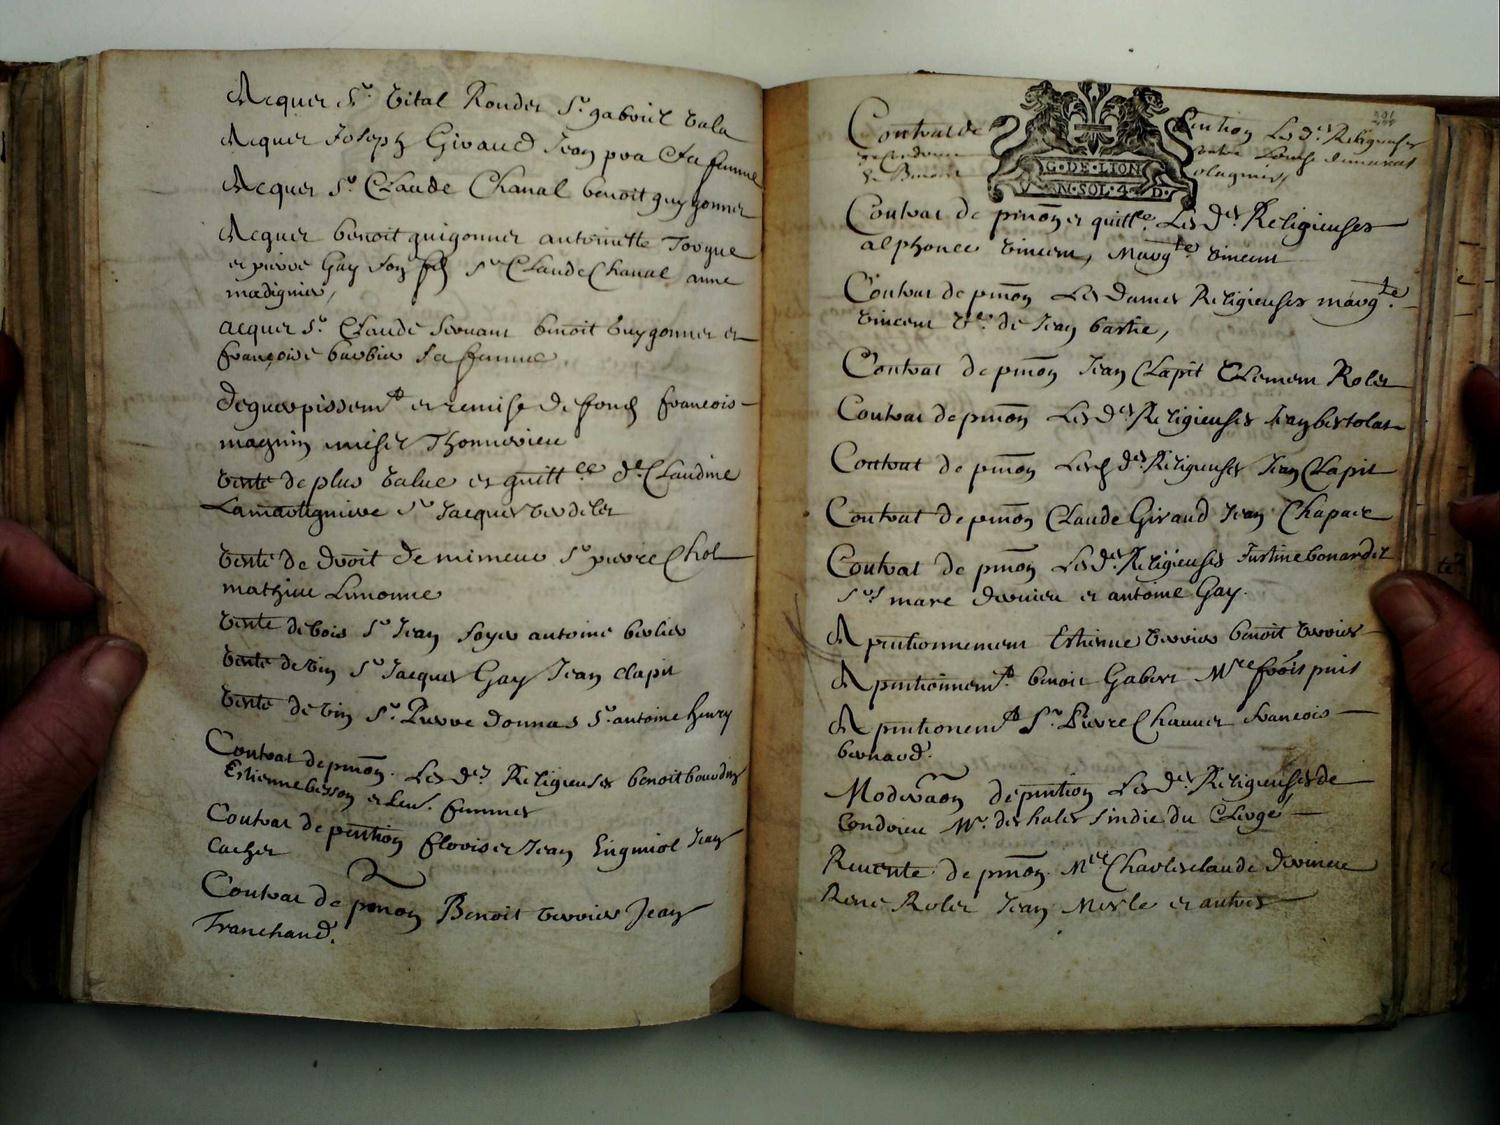 Acquer Sr. Vital Rondes Sr. gabriel Vala
Acquer Joseph Giraud Jean pra & sa femme
Acquer Sr. Claude Chanal benoit guygonner
Acquer benoit guigonner antoinette
et pierre Gay son fils Sr Claude Chanal anne
acquer Sr. Claude Servant benoit guygonner et
françoise barbier sa femme
Deguerpissemt et remise de fond francois
magnin
Vente de plus value et quittce de Claudine
Lamartigniere Sr Jacques Verdelet
Vente de droit de mineur Sr pierre Chol
mathieu Limonne
Vente de bois Sr Jean Soyer antoine berlier
Vente de Vin Sr Jacques Gay Jean clapit
Vente de Vin Sr. Pierre donnas Sr. antoine henry
Contrat de pnion. Les des Religieuses benoit bourdin
Estienne besson et leur. femmes
Contrat de pention Jean Jean
Cacher
Contrat de pnion Benoit Verrier Jean
Franchand.
Contrat de
G·DE·LION
V N·SOL·4·D·
ention Les des Religieuses
Contrat de pnion et quittce. Les des Religieuses
alphonce Vincent, Margte Vincent
Contrat de pnion Les Dames Religieuses margte.
Vincent Vve de Jean bastie,
Contrat de pnion Jean Clapit Clement Roler
Contrat de pnion Les des Religieuses Jean bertolat
Contrat de pnion Les des Religieuses Jean Clapit
Contrat de pnion Claude Giraud Jean Chapare
Contrat de pnion Les des Religieuses Justine bonardel
Srs marc et antoine Gay.
Apentionnement Estienne Verrier benoit Verrier
Apentionnemt. benoit Gabert Mre frois puis
Apentionemt Sr. Pierre Chauuer francois
bernard.
Moderaon de pention Les des Religieuses de
Condrieu Mr. des hales sindic du Clergé
Reuente de pnion. Mre Charles claude
Rene Roler Jean Merle et autres